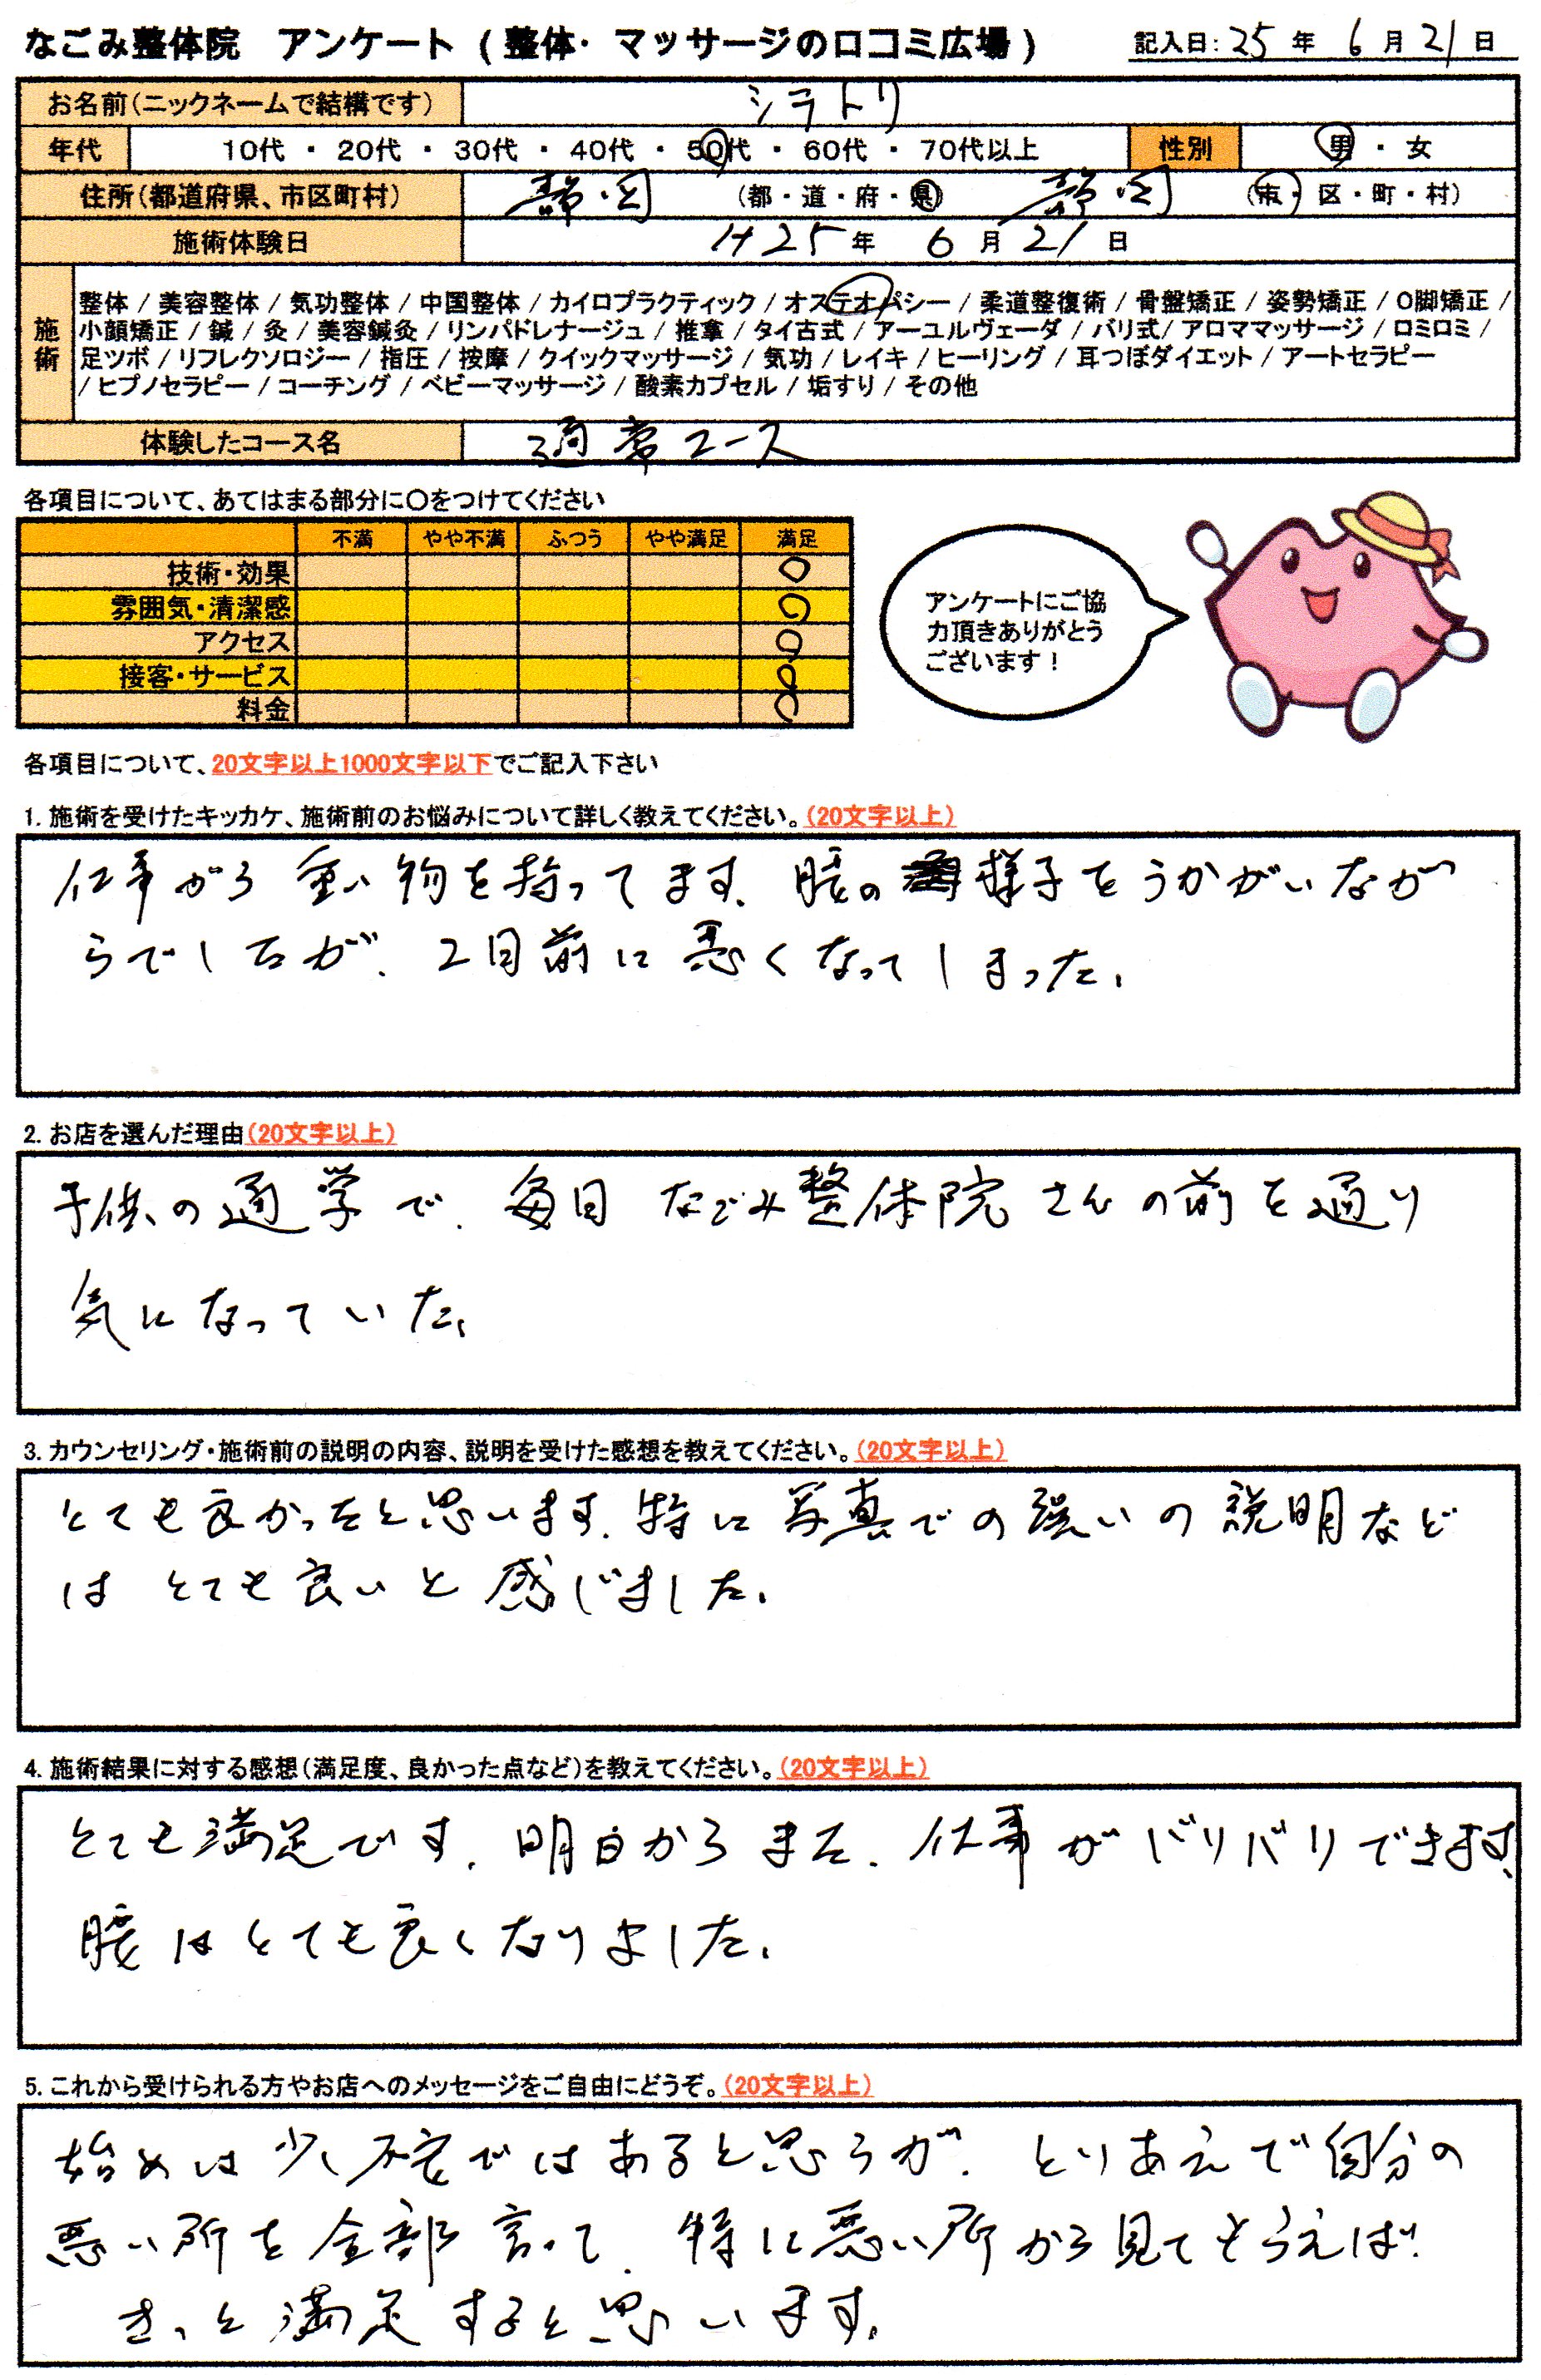 なごみ整体院　アンケート（整体・マッサージの口コミ広場）
記入日：25年 6月21日
お名前（ニックネームで結構です） シラトリ
年代 10代・20代・30代・40代・50代・60代・70代以上 性別 男・女
住所（都道府県、市区町村） 静岡（都・道・府・県） 静岡（市・区・町・村）
施術体験日 H25年 6月21日
施術
整体 / 美容整体 / 気功整体 / 中国整体 / カイロプラクティック / オステオパシー / 柔道整復術 / 骨盤矯正 / 姿勢矯正 / O脚矯正 /
小顔矯正 / 鍼 / 灸 / 美容鍼灸 / リンパドレナージュ / 推拿 / タイ古式 / アーユルヴェーダ / バリ式/ アロママッサージ / ロミロミ /
足ツボ / リフレクソロジー / 指圧 / 按摩 / クイックマッサージ / 気功 / レイキ / ヒーリング / 耳つぼダイエット / アートセラピー
/ ヒプノセラピー / コーチング / ベビーマッサージ / 酸素カプセル / 垢すり / その他
体験したコース名 通常コース
各項目について、あてはまる部分に○をつけてください
不満 やや不満 ふつう やや満足 満足
技術・効果 ○
雰囲気・清潔感 ○
アクセス ○
接客・サービス ○
料金 ○
アンケートにご協
力頂きありがとう
ございます！
各項目について、20文字以上1000文字以下でご記入下さい
1. 施術を受けたキッカケ、施術前のお悩みについて詳しく教えてください。（20文字以上）
仕事がら 重い物を持ってます。腰の様子をうかがいなが
らでしたが、2日前に悪くなってしまった。
2. お店を選んだ理由（20文字以上）
子供の通学で、毎日 なごみ整体院さんの前を通り
気になっていた。
3. カウンセリング・施術前の説明の内容、説明を受けた感想を教えてください。（20文字以上）
とても良かったと思います。特に写真での違いの説明など
は とても良いと感じました。
4. 施術結果に対する感想（満足度、良かった点など）を教えてください。（20文字以上）
とても満足です。明日からまた、仕事がバリバリできます。
腰はとても良くなりました。
5. これから受けられる方やお店へのメッセージをご自由にどうぞ。（20文字以上）
始めは少し不安ではあると思うが、とりあえで自分の
悪い所を全部言って、特に悪い所から見てもらえば
きっと満足すると思います。